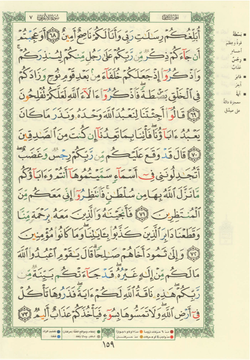 أُبَلِّغُكُمْ رِسَٰلَٰتِ رَبِّى وَأَنَا۠ لَكُمْ نَاصِحٌ أَمِينٌ ٦٨ أَوَعَجِبْتُمْ
أَن جَآءَكُمْ ذِكْرٌ مِّن رَّبِّكُمْ عَلَىٰ رَجُلٍ مِّنكُمْ لِيُنذِرَكُمْ
وَٱذْكُرُوٓا۟ إِذْ جَعَلَكُمْ خُلَفَآءَ مِنۢ بَعْدِ قَوْمِ نُوحٍ وَزَادَكُمْ
فِى ٱلْخَلْقِ بَصْۜطَةً فَٱذْكُرُوٓا۟ ءَالَآءَ ٱللَّهِ لَعَلَّكُمْ تُفْلِحُونَ
٦٩ قَالُوٓا۟ أَجِئْتَنَا لِنَعْبُدَ ٱللَّهَ وَحْدَهُۥ وَنَذَرَ مَا كَانَ
يَعْبُدُ ءَابَآؤُنَا فَأْتِنَا بِمَا تَعِدُنَآ إِن كُنتَ مِنَ ٱلصَّٰدِقِينَ
٧٠ قَالَ قَدْ وَقَعَ عَلَيْكُم مِّن رَّبِّكُمْ رِجْسٌ وَغَضَبٌ
أَتُجَٰدِلُونَنِى فِىٓ أَسْمَآءٍ سَمَّيْتُمُوهَآ أَنتُمْ وَءَابَآؤُكُم
مَّا نَزَّلَ ٱللَّهُ بِهَا مِن سُلْطَٰنٍ فَٱنتَظِرُوٓا۟ إِنِّى مَعَكُم مِّنَ
ٱلْمُنتَظِرِينَ ٧١ فَأَنجَيْنَٰهُ وَٱلَّذِينَ مَعَهُۥ بِرَحْمَةٍ مِّنَّا
وَقَطَعْنَا دَابِرَ ٱلَّذِينَ كَذَّبُوا۟ بِـَٔايَٰتِنَا وَمَا كَانُوا۟ مُؤْمِنِينَ
٧٢ وَإِلَىٰ ثَمُودَ أَخَاهُمْ صَٰلِحًا قَالَ يَٰقَوْمِ ٱعْبُدُوا۟ ٱللَّهَ
مَا لَكُم مِّنْ إِلَٰهٍ غَيْرُهُۥ قَدْ جَآءَتْكُم بَيِّنَةٌ مِّن
رَّبِّكُمْ هَٰذِهِۦ نَاقَةُ ٱللَّهِ لَكُمْ ءَايَةً فَذَرُوهَا تَأْكُلْ
فِىٓ أَرْضِ ٱللَّهِ وَلَا تَمَسُّوهَا بِسُوٓءٍ فَيَأْخُذَكُمْ عَذَابٌ أَلِيمٌ ٧٣
١٥٩